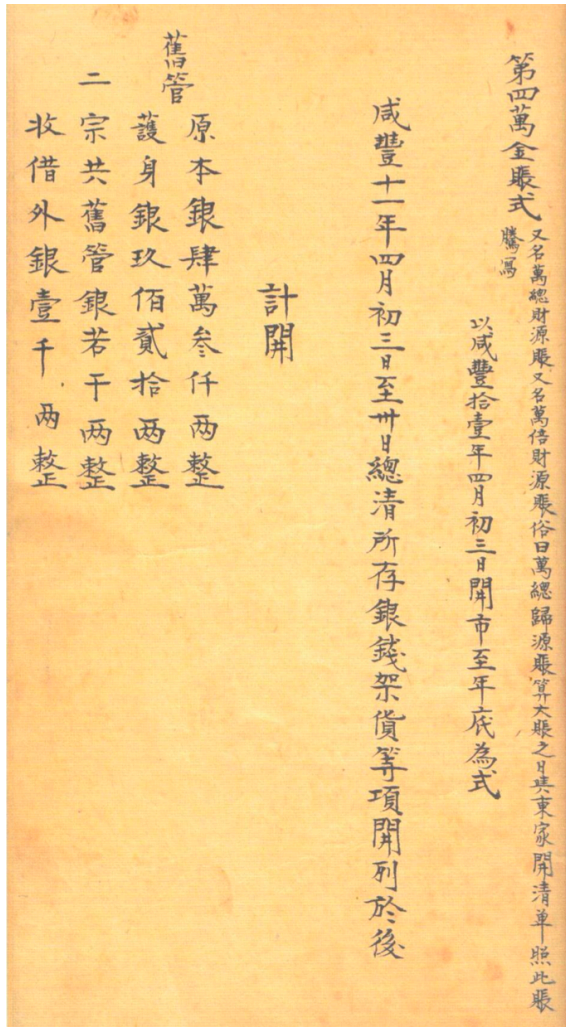 第四萬金賬式
又名萬總財源賬又名萬倍財源賬俗曰萬總歸源賬算大賬之日與東家開清单照此賬
騰寫
以咸豐拾壹年四月初三日開市至年底為式
咸豐十一年四月初三日至卅日總清所存銀錢架貨等項開列於後
計開
舊管
原本銀肆萬叁仟两整
護身銀玖佰貳拾两整
二宗共舊管銀若干两整
收借外銀壹千两整